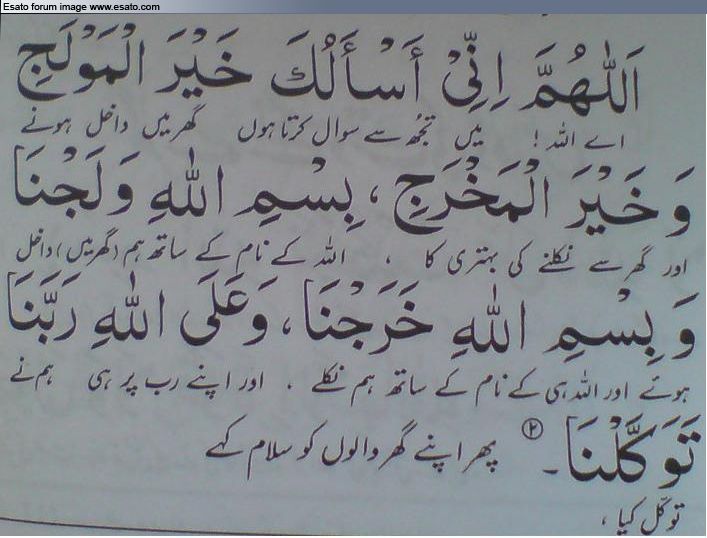 Esato forum image www.esato.com
اَللّٰهُمَّ اِنِّىْ أَسْأَلُكَ خَيْرَ الْمَوْلَجِ
اے اللہ ! میں تجھ سے سوال کرتا ہوں گھر میں داخل ہونے
وَخَيْرَ الْمَخْرَجِ ، بِسْمِ اللّٰهِ وَلَجْنَا
اور گھر سے نکلنے کی بہتری کا ، اللہ کے نام کے ساتھ ہم (گھر میں) داخل
وَبِسْمِ اللّٰهِ خَرَجْنَا ، وَعَلَى اللّٰهِ رَبِّنَا
ہوئے اور اللہ ہی کے نام کے ساتھ ہم نکلے ، اور اپنے رب پر ہی ہم نے
تَوَكَّلْنَا ۔ ② پھر اپنے گھر والوں کو سلام کہے
توکّل کیا ،